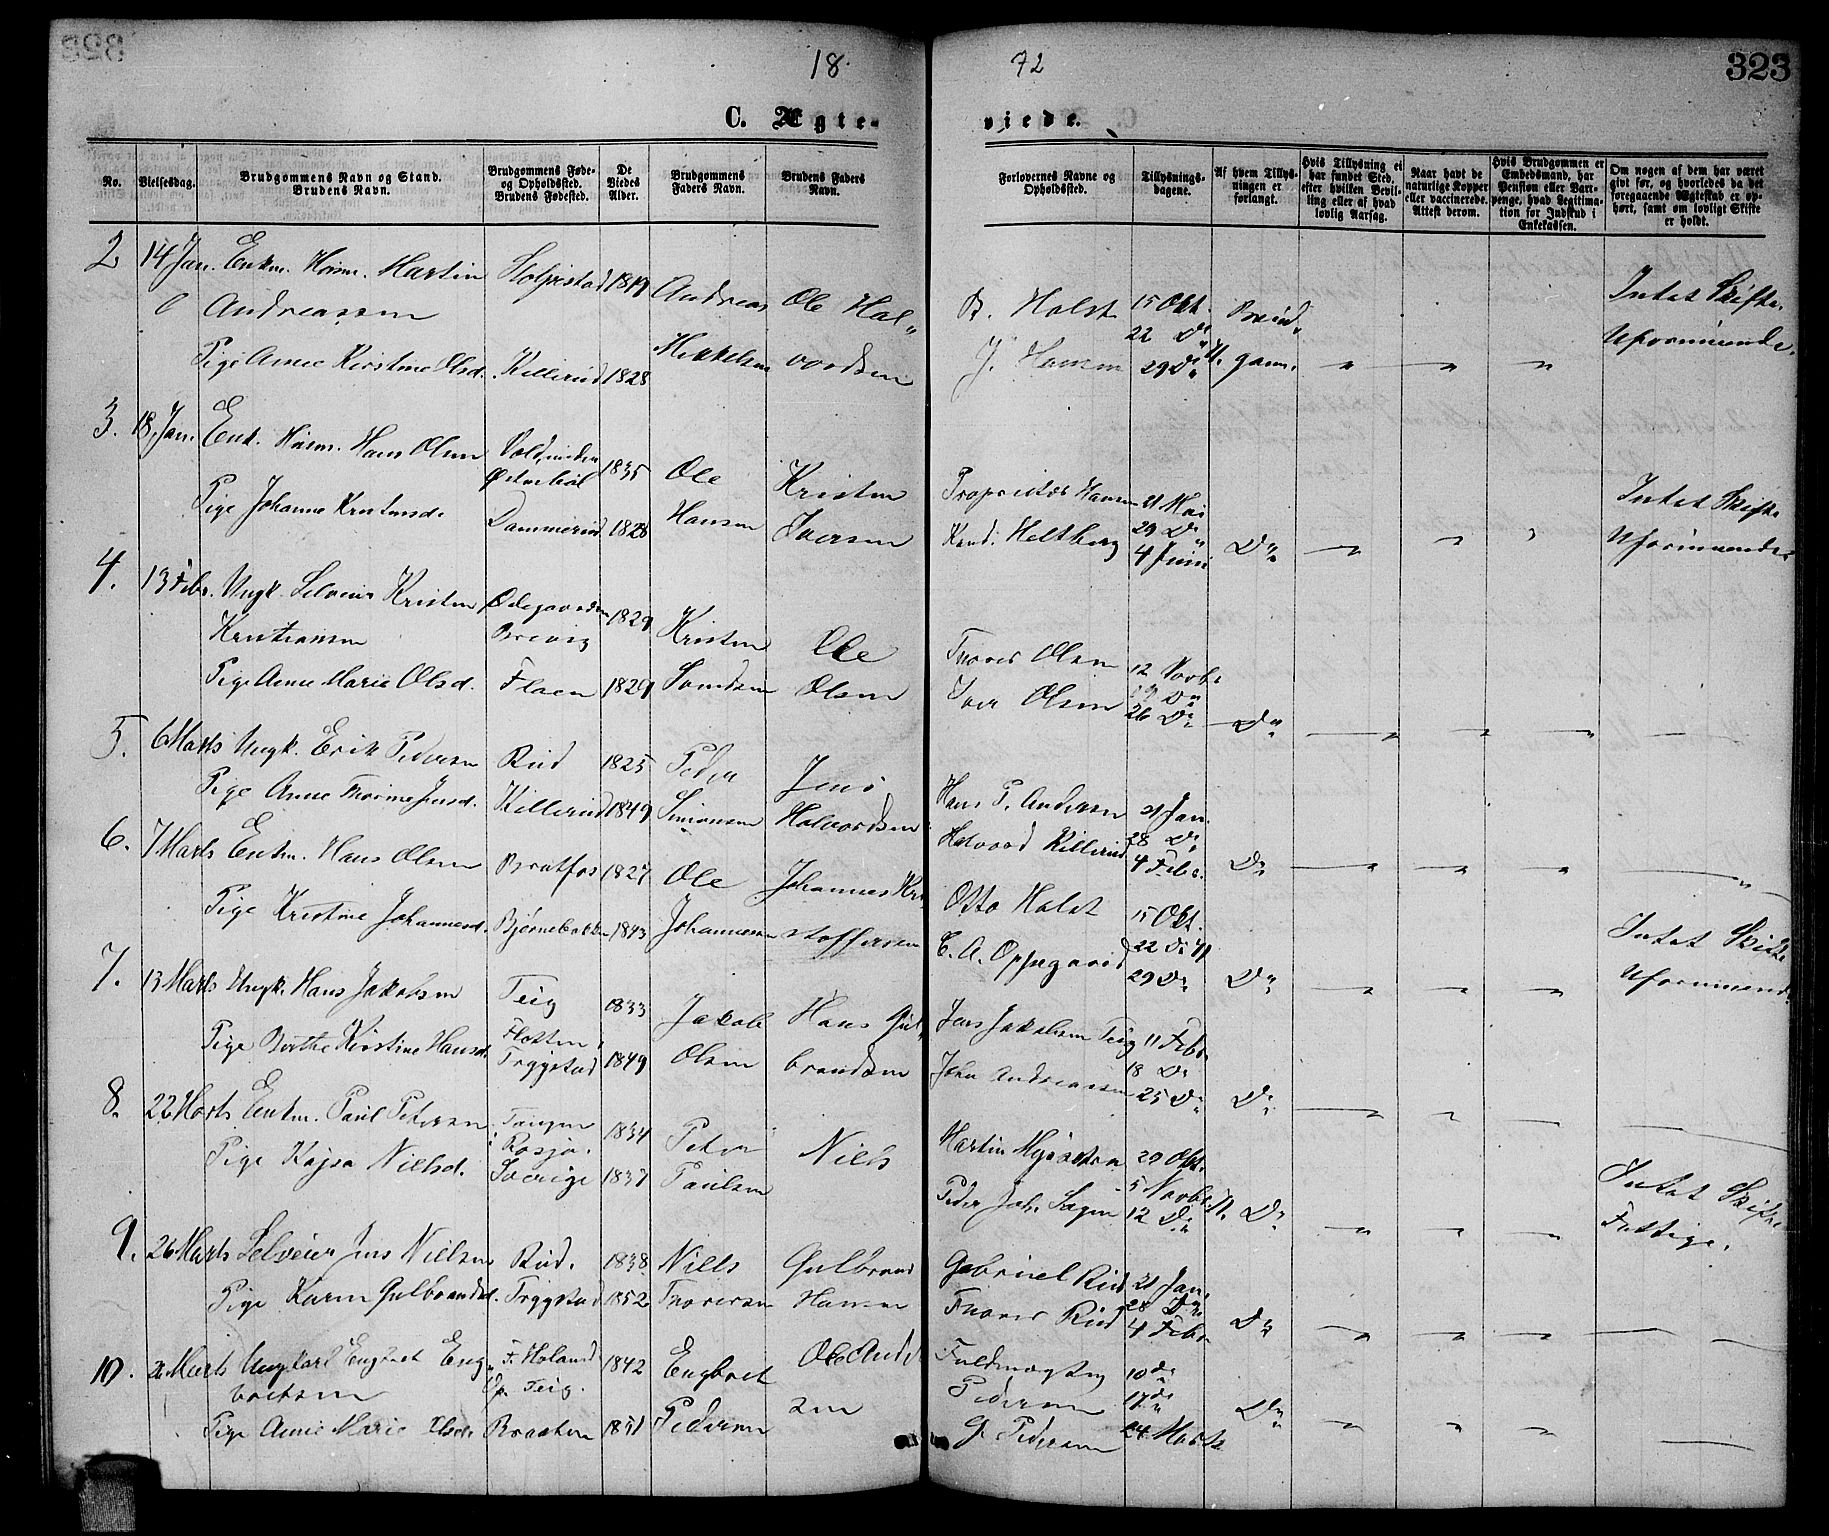 18
72
323
C. Ægte-
viede.
No.
Vielsesdag.
Brudgommens Navn og Stand.
Brudens Navn.
Brudgommens Føde-
og Opholdssted.
Brudens Fødested.
De
Viedes
Alder.
Brudgommens
Faders Navn.
Brudens Faders
Navn.
Forlovernes Navne og
Opholdssted.
Tillysnings-
dagene.
Af hvem Tillys-
ningen er
forlangt.
Hvis Tillysning ei
har fundet Sted,
efter hvilken Bevil-
ling eller af hvad
lovlig Aarsag.
Naar havt de
naturlige Kopper
eller vaccinerede.
Attest derom.
Hvis Brudgommen er
Embedsmand, har
Pension eller Vart-
penge, hvad Legitima-
tion for Indskud i
Enkekassen.
Om nogen af dem har været
givt før, og hvorledes da det
foregaaende Ægteskab er op-
hørt, samt om lovligt Skifte
er holdt.
2 14 Jan. Enkm. Husm. Martin
Andreassen
Pige Anne Kirstine Olsd. Killerud 1828
Andreas
Mikkelsen
Ole Hal"
vordsen
B. Holst
J. Hansen
15 Okt.
22 Do
29 Do
Brud"
gom.
Intet Skifte.
Uformuende.
3. 18 Jan. Enk. Husm. Hans Olsen 1835
Pige Johanne Kristensd. Dammerud 1828
Ole
Hansen
Kristen
Iversen
Proprietær Hansen
Kand. Heltberg
21 Mai
29 Do
4 Juni
Do
Intet Skifte
Uformuende
4. 13 Febr. Ungk. Selveier Kristen
Kristiansen
Ødegaarden
Brevig 1829
Pige Anne Marie Olsd. Flaen 1829
Kristen
Ole
Olsen
Thorer Olsen
Iver Olsen
12 Novbr
19 Do
26 Do
Do
5. 6 Marts Ungk. Erik Pedersen Rud 1825
Pige Anne Thorine Jensd. Killerud 1849
Peder
Simonsen
Jens
Halvordsen
Hans P. Andersen
Halvord Killerud
21 Jan.
28 Do
4 Febr.
Do
6. 7 Marts Enkm. Hans Olsen Bratfos 1827
Pige Kristine Johannesd. Bjørnebakken 1843
Ole
Johannessen
Johannes Kri
stoffersen
Otto Holst
C. A. Oppegaard
15 Okt.
22 Do
29 Do
Do
Intet Skifte
Uformuende
7. 13 Marts Ungk. Hans Jakobsen Teig 1833
Pige Berthe Kirstine Hansd.
Trygstad 1849
Jakob
Olsen
Hans Gul"
brandsen
Jens Jakobsen Teig
John Andreassen
11 Febr
18 Do
25 Do
Do
8. 22 Marts Enkm. Paul Petersen Tangen
i Rosjø. 1834
Pige Kajsa Nielsd. Sverige 1837
Peter
Paulsen
Niels
Martin
Peder Joh. Sagen
29 Okt.
5 Novbr.
12 Do
Do
Intet Skifte
Fattige.
9. 26 Marts Selveier Jens Nielsen Rud. 1838
Pige Karen Gulbrandsd. Trygstad 1852
Niels
Thoresen
Gulbrand
Hansen
Gabriel Rud
Thorer Rud
21 Jan.
28 Do
4 Febr
Do
10. 26 Marts Ungkarl Engbret Eng"
bretsen
F. Høland
Op. Teig. 1842
Pige Anne Marie Olsd. Braaten 1851
Engbret
Pedersen
Ole Andr
sen
Fuldmægtig
Pedersen
G. Pedersen
10 do
17 do
24 Marts
Do